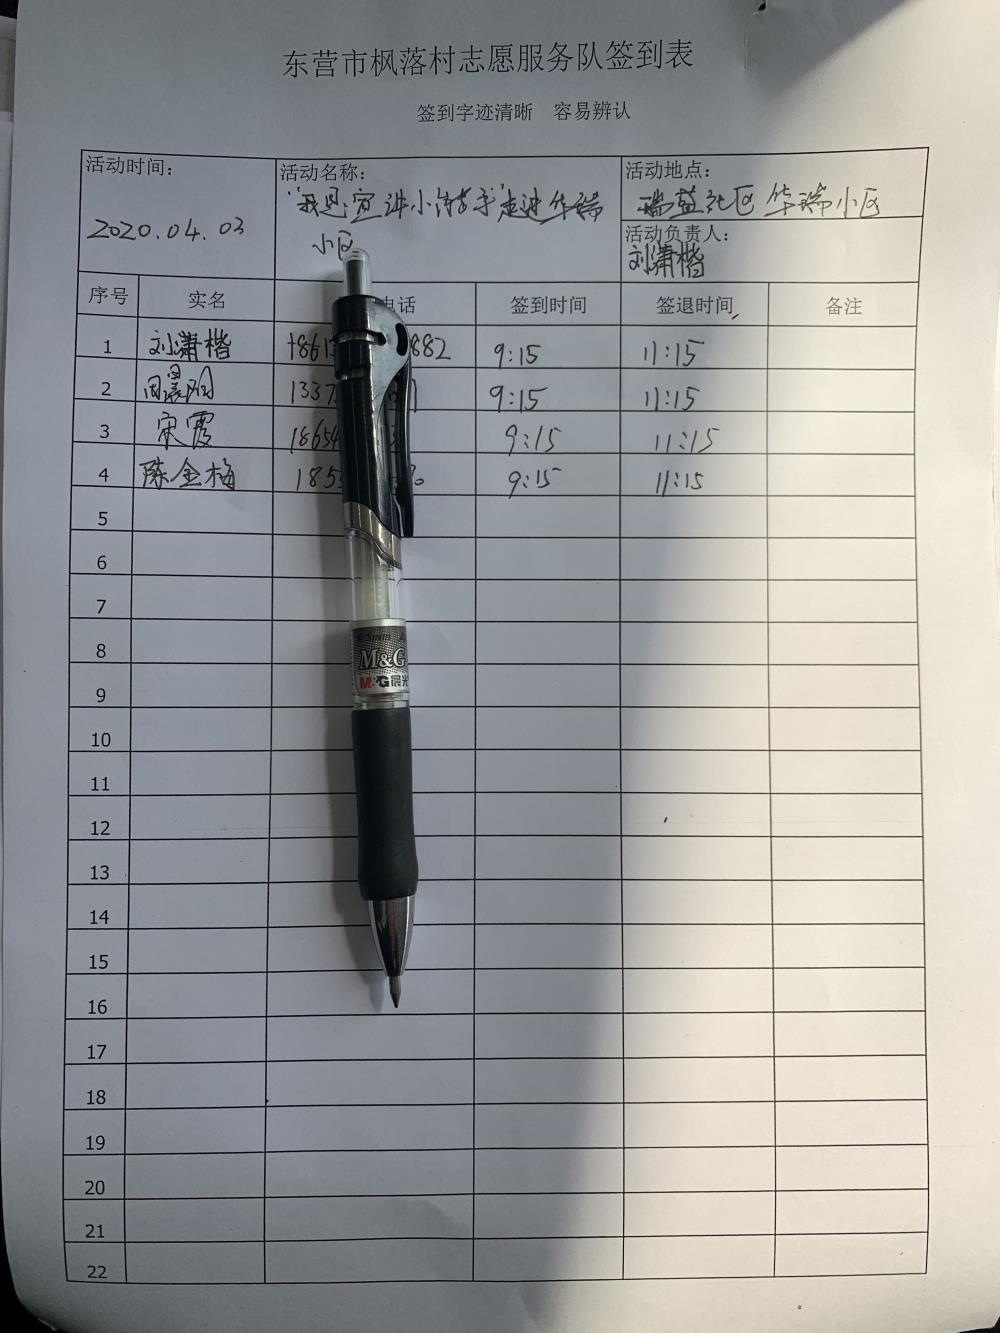 东营市枫落村志愿服务队签到表
签到字迹清晰 容易辨认
活动时间: 活动名称: 活动地点:
2020.04.03 "我是宣讲小 手"走进华瑞 瑞益社区华瑞小区
小区 活动负责人:
刘潇楷
序号 实名 电话 签到时间 签退时间 备注
1 刘潇楷 1861 882 9:15 11:15
2 周晨阳 1337 9:15 11:15
3 宋霞 18654 9:15 11:15
4 陈金梅 185 9:15 11:15
5
6
7
8
9
10
11
12
13
14
15
16
17
18
19
20
21
22
0.5mm
M&G
M&G晨光